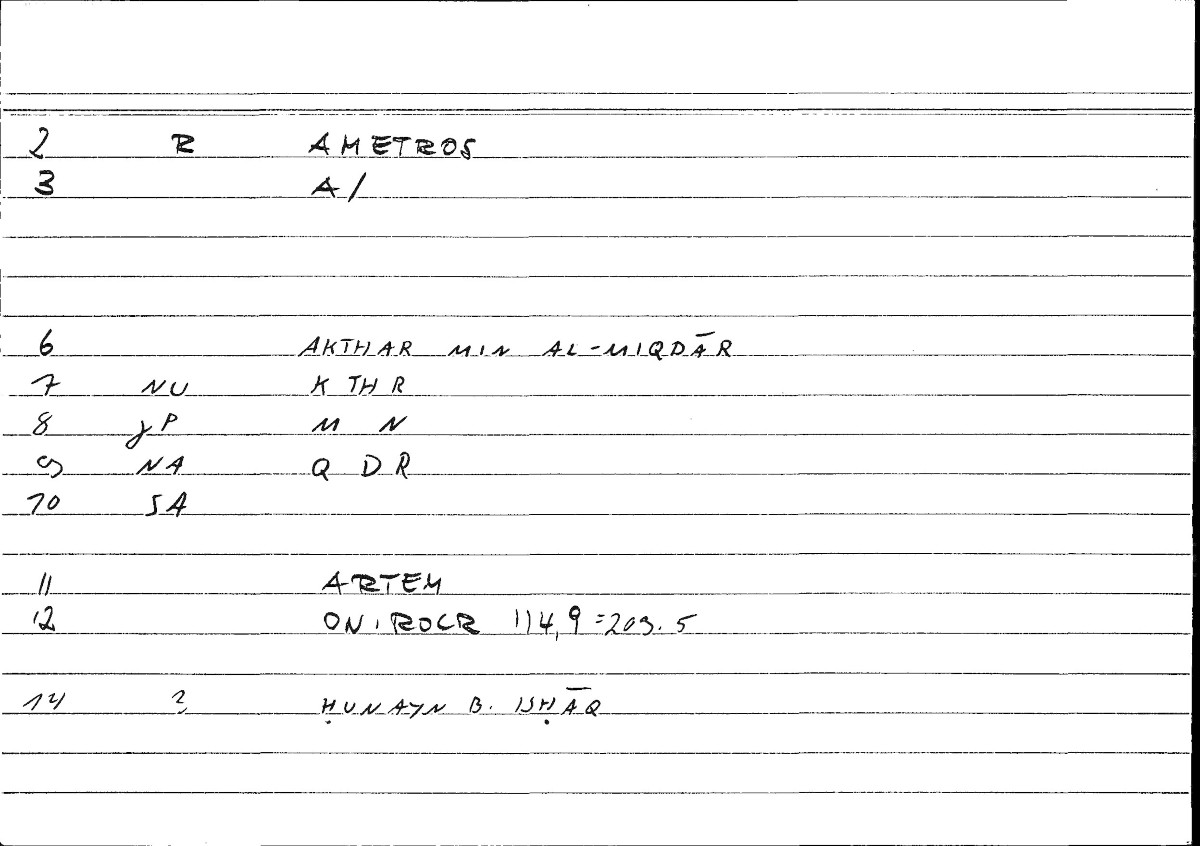 2 R AMETROS
3 A/
6 AKTHAR MIN AL-MIQDĀR
7 NU K TH R
8 jP M N
9 NA Q D R
10 SA
11 ARTEM
12 ONIROCR 114,9=209.5
14 2 ḤUNAYN B. ISḤĀQ